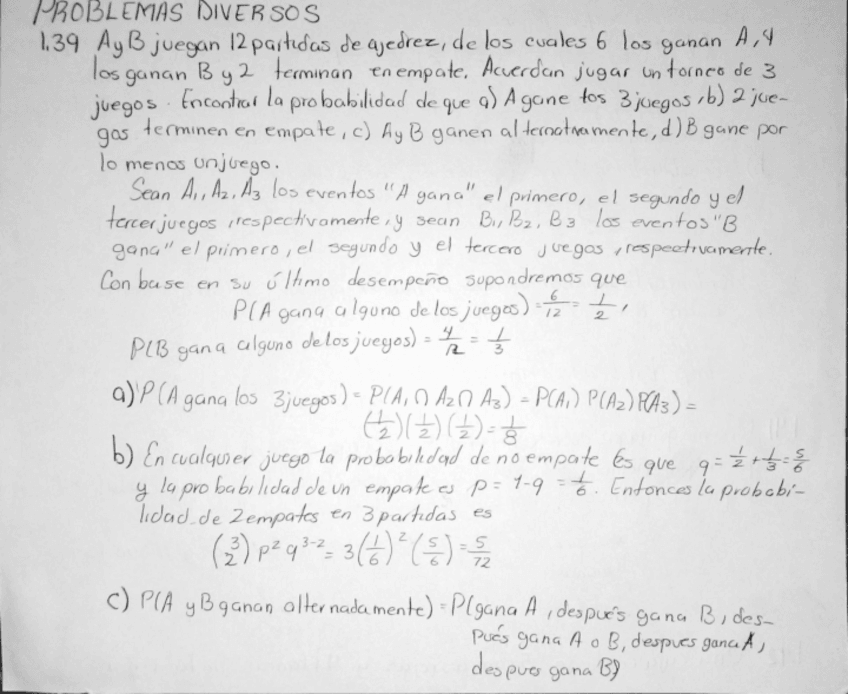 PROBLEMAS DIVERSOS
1.39 A y B juegan 12 partidas de ajedrez, de los cuales 6 los ganan A, 4
los ganan B y 2 terminan en empate. Acuerdan jugar un torneo de 3
juegos. Encontrar la probabilidad de que a) A gane los 3 juegos, b) 2 jue-
gos terminen en empate, c) A y B ganen alternativamente, d) B gane por
lo menos un juego.
Sean A₁, A₂, A₃ los eventos "A gana" el primero, el segundo y el
tercer juegos, respectivamente, y sean B₁, B₂, B₃ los eventos "B
gana" el primero, el segundo y el tercero juegos, respectivamente.
Con base en su último desempeño supondremos que
P(A gana alguno de los juegos) = 6/12 = 1/2,
P(B gana alguno de los juegos) = 4/12 = 1/3
a) P(A gana los 3 juegos) = P(A₁ ∩ A₂ ∩ A₃) = P(A₁) P(A₂) P(A₃) =
(1/2)(1/2)(1/2) = 1/8
b) En cualquier juego la probabilidad de no empate es que q = 1/2 + 1/3 = 5/6
y la probabilidad de un empate es p = 1-q = 1/6. Entonces la probabi-
lidad de 2 empates en 3 partidas es
(3 2) p² q³⁻² = 3(1/6)² (5/6) = 5/72
c) P(A y B ganan alternadamente) = P(gana A, después gana B, des-
pués gana A o B, despues gana A,
despues gana B)